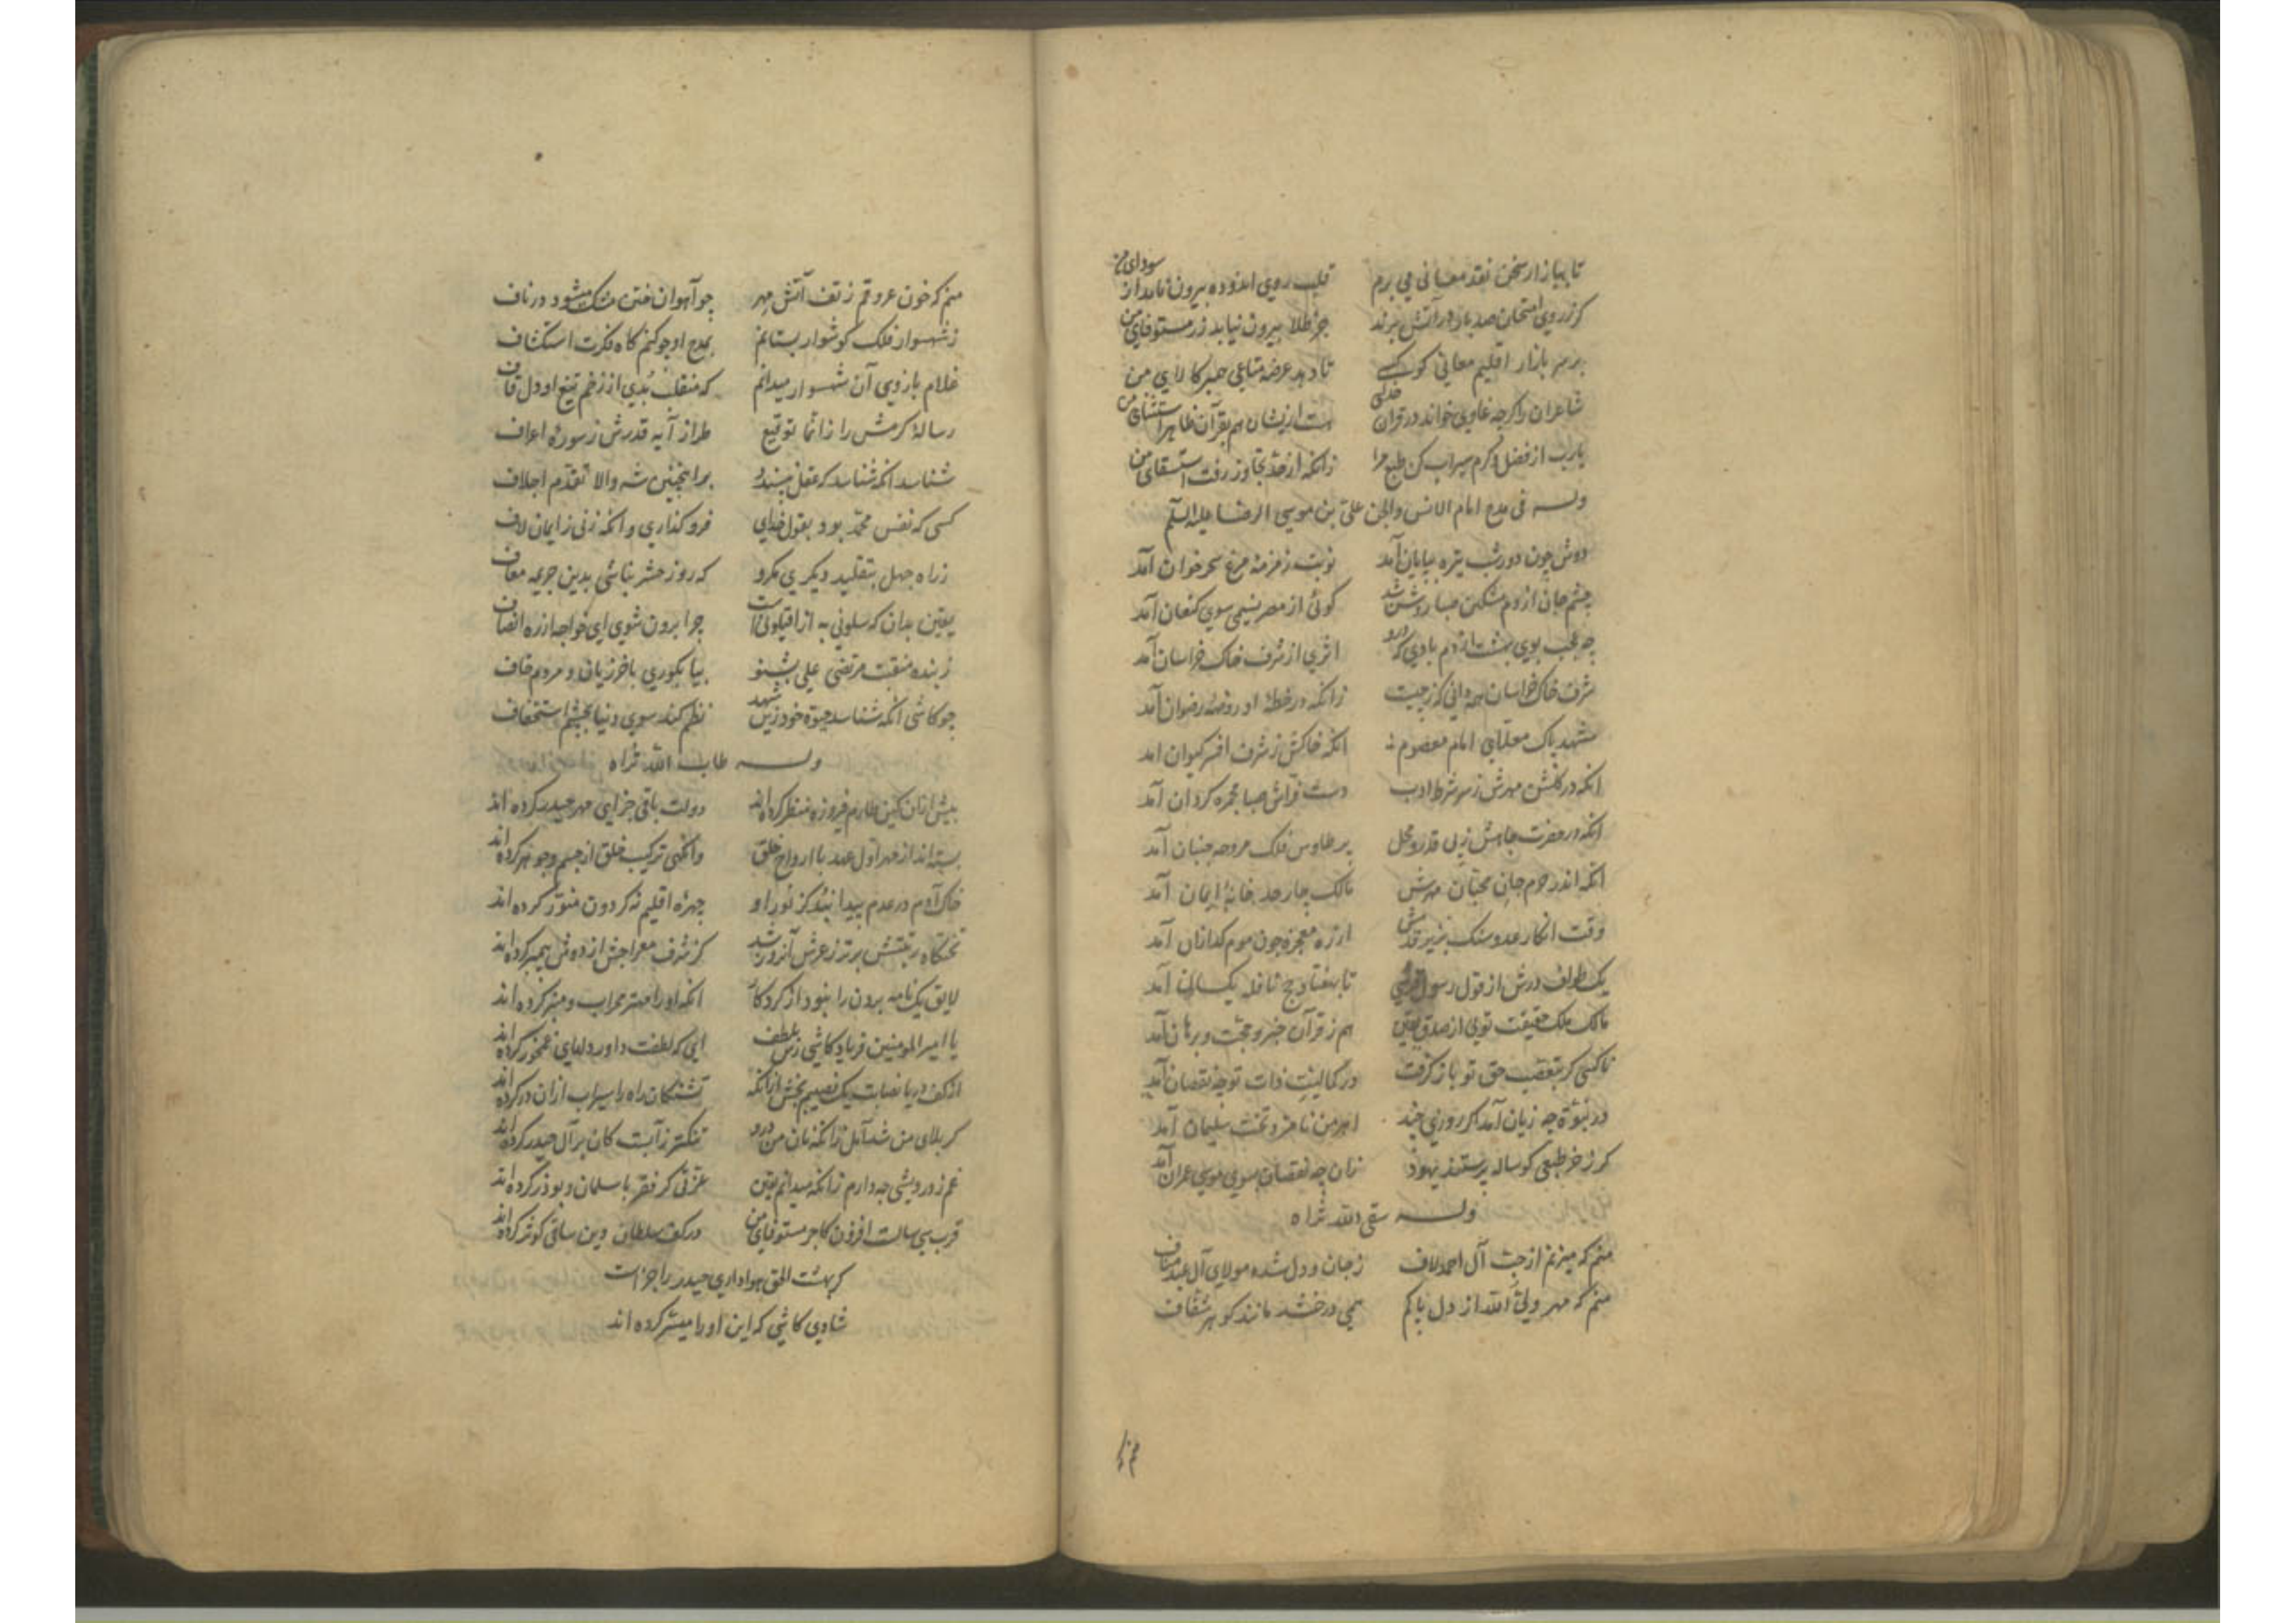 تا ببازار سخن نقد معانی می برم قلب روی اندوده بیرون نامد از سودای من
کز روی امتحان صد بار در آتش برند جز طلا بیرون نیاید زر مستوفای من
بر سر بازار اقلیم معانی کو کسی تا دهد عرضه متاعی جز کا رای من
شاعران را کرچه غاوی خواند در قران خدای هست ازیشان هم بقرآن ظاهر استثنای من
یارب از فضل و کرم سیراب کن طبع مرا زانکه از حد تجاوز رفت استسقای من
وله فی مدح امام الانس والجن علی بن موسی الرضا علیه السلم
دوش چون دور شب تیره بپایان آمد نوبت زمزمه مرغ سحرخوان آمد
چشم جان از دم مشکین صبا روشن شد کوئی از مصر نسیمی سوی کنعان آمد
چه عجب بوی بهشت از دم بادی که درو اثری از شرف خاک خراسان آمد
شرف خاک خراسان همه دانی که ز چیست زانکه در خطه او روضه رضوان آمد
مشهد پاک معلای امام معصوم انکه خاکش ز شرف افسر کیوان امد
انکه در کلشن مهرش ز سر شرط ادب دست فراش صبا مجمره کردان آمد
انکه در حضرت جاهش ز پی قدر و محل پر طاوس فلک مروحه جنبان آمد
انکه اندر حرم جان محبان مهرش مالک چار حد خانه ایمان آمد
وقت انکار عدو سنک بزیر قدمش از ره معجزه چون موم کدازان آمد
یک طواف درش از قول رسول قرشی تا بهفتاد حج نافله یکسان آمد
مالک ملک حقیقت توی از صدق یقین هم ز قرآن خبر و حجت و برهان آمد
ناکسی کر بتعصب حق تو باز کرفت در کمالیت ذات تو چه نقصان آمد
در نبوة چه زیان آمد کر روزی چند اهرمن نامزد تخت سلیمان آمد
کر ز خر طبعی کوساله پرستند یهود زان چه نقصان بسوی موسی عمران آمد
وله سقی الله ثراه
منم که میزنم از حب آل احمد لاف ز جان و دل شده مولای آل عبد مناف
منم که مهر ولی الله از دل پاکم همی درخشد مانند کوهر شفاف
منم که
منم که خون عروقم ز تف آتش مهر چو آهوان ختن مشک میشود در ناف
ز شهسوار فلک کوشوار بستانم بمدح او چو کنم کاه فکرت استکشاف
غلام بازوی آن شهسوار میدانم که منقلب بدی از زخم تیغ او دل قاف
رساله کرمش را ز انما توقیع طراز آیه قدرش ز سوره اعراف
شناسد انکه شناسد که عقل نپسندد بر اینچنین شه والا تقدم اجلاف
کسی که نفس محمد بود بقول خدای فروکذاری وانکه زنی ز ایمان لاف
ز راه جهل بتقلید دیکری مکرو که روز حشر نباشی بدین جریمه معاف
یقین بدان که سلونی به از اقیلونی است چرا برون شوی ای خواجه از ره انصاف
ز بنده منقبت مرتضی علی بشنو بیا بکوری باخرزیان و مردم خاف
چو کاشی انکه شناسد حیوة خود زین شهد نظر کند سوی دنیا بچشم استخفاف
وله طاب الله ثراه
پیش ازان کین طارم فیروزه منظر کرده اند دولت باقی جزای مهر حیدر کرده اند
بسته اند از مهر اول عهد با ارواح خلق وانکهی ترکیب خلق از جسم و جوهر کرده اند
خاک آدم در عدم پیدا نبد کز نور او چهره اقلیم نه کردون منور کرده اند
تختکاه رتبتش برتر ز عرش آنروز شد کز شرف معراجش از دوش پیمبر کرده اند
لایق یک نامه بردن را نبود از کردکار انکه او را مهتر محراب و منبر کرده اند
یا امیر المومنین فریاد کاشی رس بلطف ای که لطفت داور دلهای غمخور کرده اند
از کف دریا نصابت یک نصیبم بخش ازانکه تشنکان راه را سیراب ازان در کرده اند
کربلای من شد آمل زانکه نان من درو تنکتر ز آبست کان بر آل حیدر کرده اند
غم ز درویشی چه دارم زانکه میدانم یقین عزتی کز فقر با سلمان و بوذر کرده اند
قرب سی سالست افزون کاجر مستوفای من در کف سلطان دین ساقی کوثر کرده اند
کر بهشت الحق هواداری حیدر را جزاست
شادی کاشی که این او را میسر کرده اند